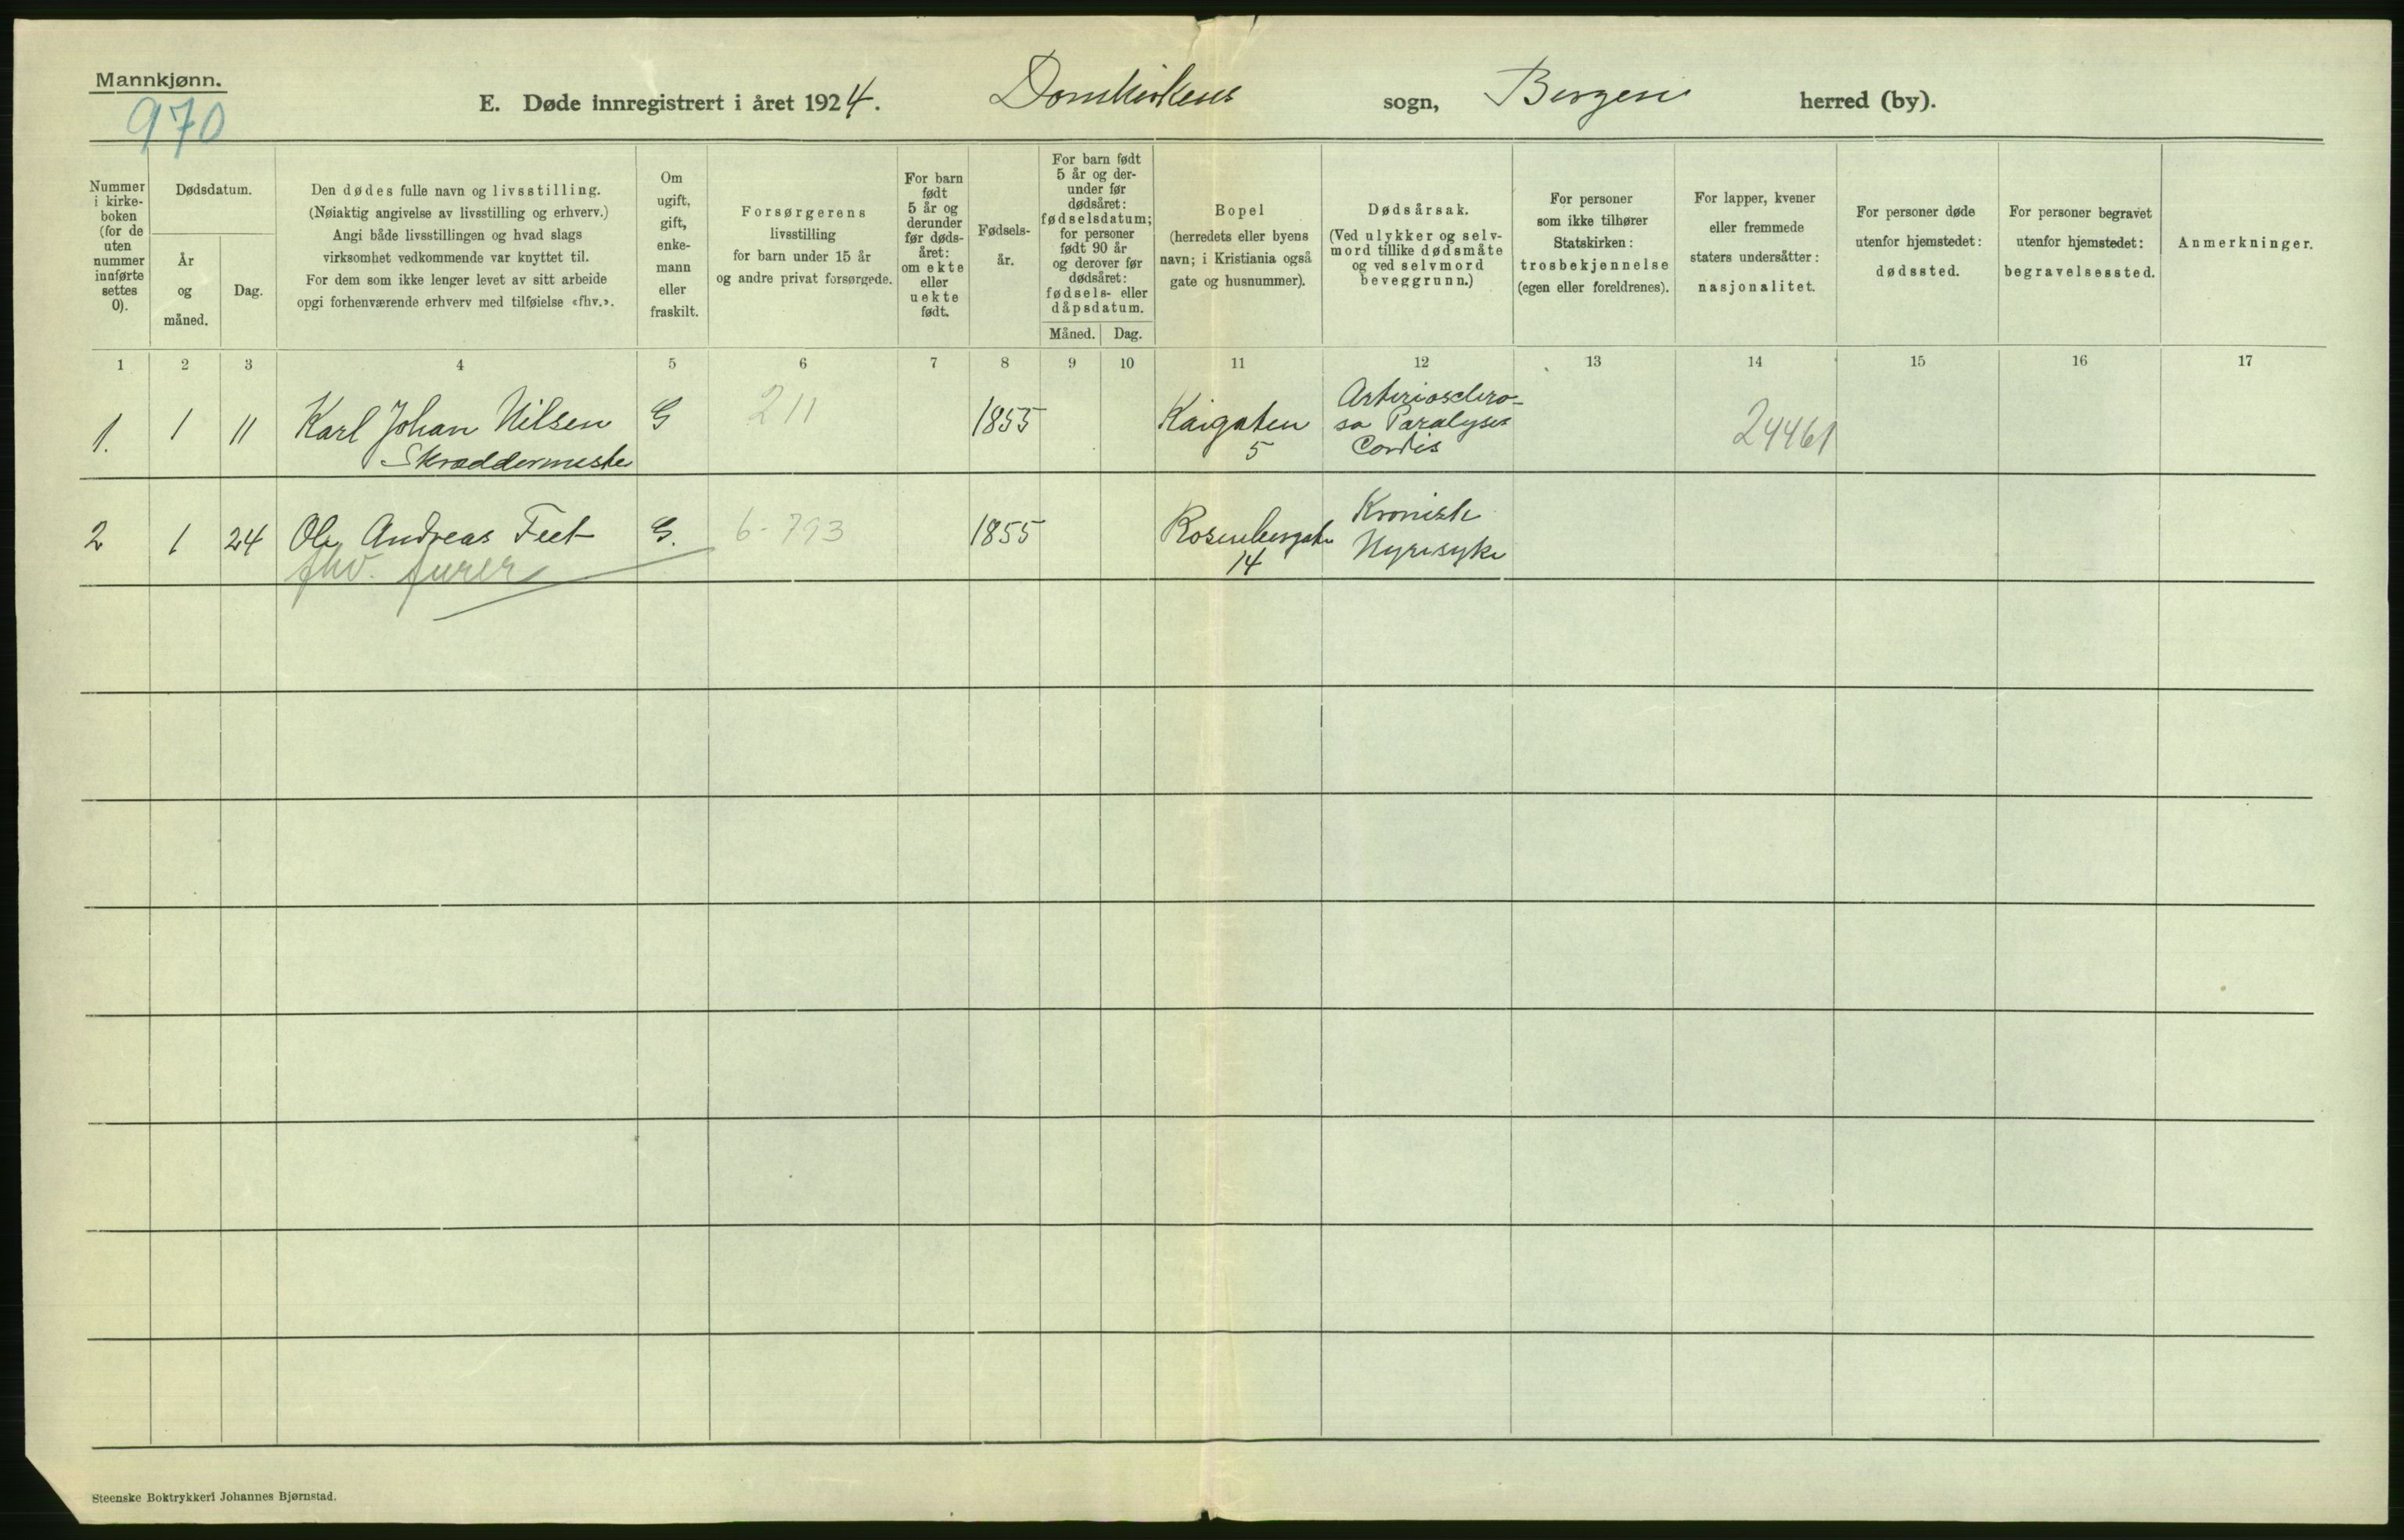 Mannkjønn.
970
E. Døde innregistrert i året 1924. Domkirkens sogn, Bergen herred (by).
Nummer i kirke-boken (for de uten nummer innførte settes 0).
Dødsdatum.
År og måned.
Dag.
Den dødes fulle navn og livsstilling.
(Nøiaktig angivelse av livsstilling og erhverv.)
Angi både livsstillingen og hvad slags
virksomhet vedkommende var knyttet til.
For dem som ikke lenger levet av sitt arbeide
opgi forhenværende erhverv med tilføielse «fhv.».
Om ugift, gift, enke-mann eller fraskilt.
Forsørgerens
livsstilling
for barn under 15 år
og andre privat forsørgede.
For barn født 5 år og derunder før døds-året: om ekte eller uekte født.
Fødsels-år.
For barn født 5 år og der-under før dødsåret: fødselsdatum; for personer født 90 år og derover før dødsåret: fødsels- eller dåpsdatum.
Måned. Dag.
Bopel
(herredets eller byens
navn; i Kristiania også
gate og husnummer).
Dødsårsak.
(Ved ulykker og selv-
mord tillike dødsmåte
og ved selvmord
beveggrunn.)
For personer
som ikke tilhører
Statskirken:
trosbekjennelse
(egen eller foreldrenes).
For lapper, kvener
eller fremmede
staters undersåtter:
nasjonalitet.
For personer døde
utenfor hjemstedet:
dødssted.
For personer begravet
utenfor hjemstedet:
begravelsessted.
Anmerkninger.
1 2 3 4 5 6 7 8 9 10 11 12 13 14 15 16 17
1. 1 11 Karl Johan Nilsen G 211 1855 Kaigaten Arteriosclero-
Skræddermester 5 sa Paralysis
Cordis
24461
2 1 24 Ole Andreas Feet G. 6-793 1855 Rosenbergsgate Kronisk
fhv. furer 14 Nyresyke
Steenske Boktrykkeri Johannes Bjørnstad.